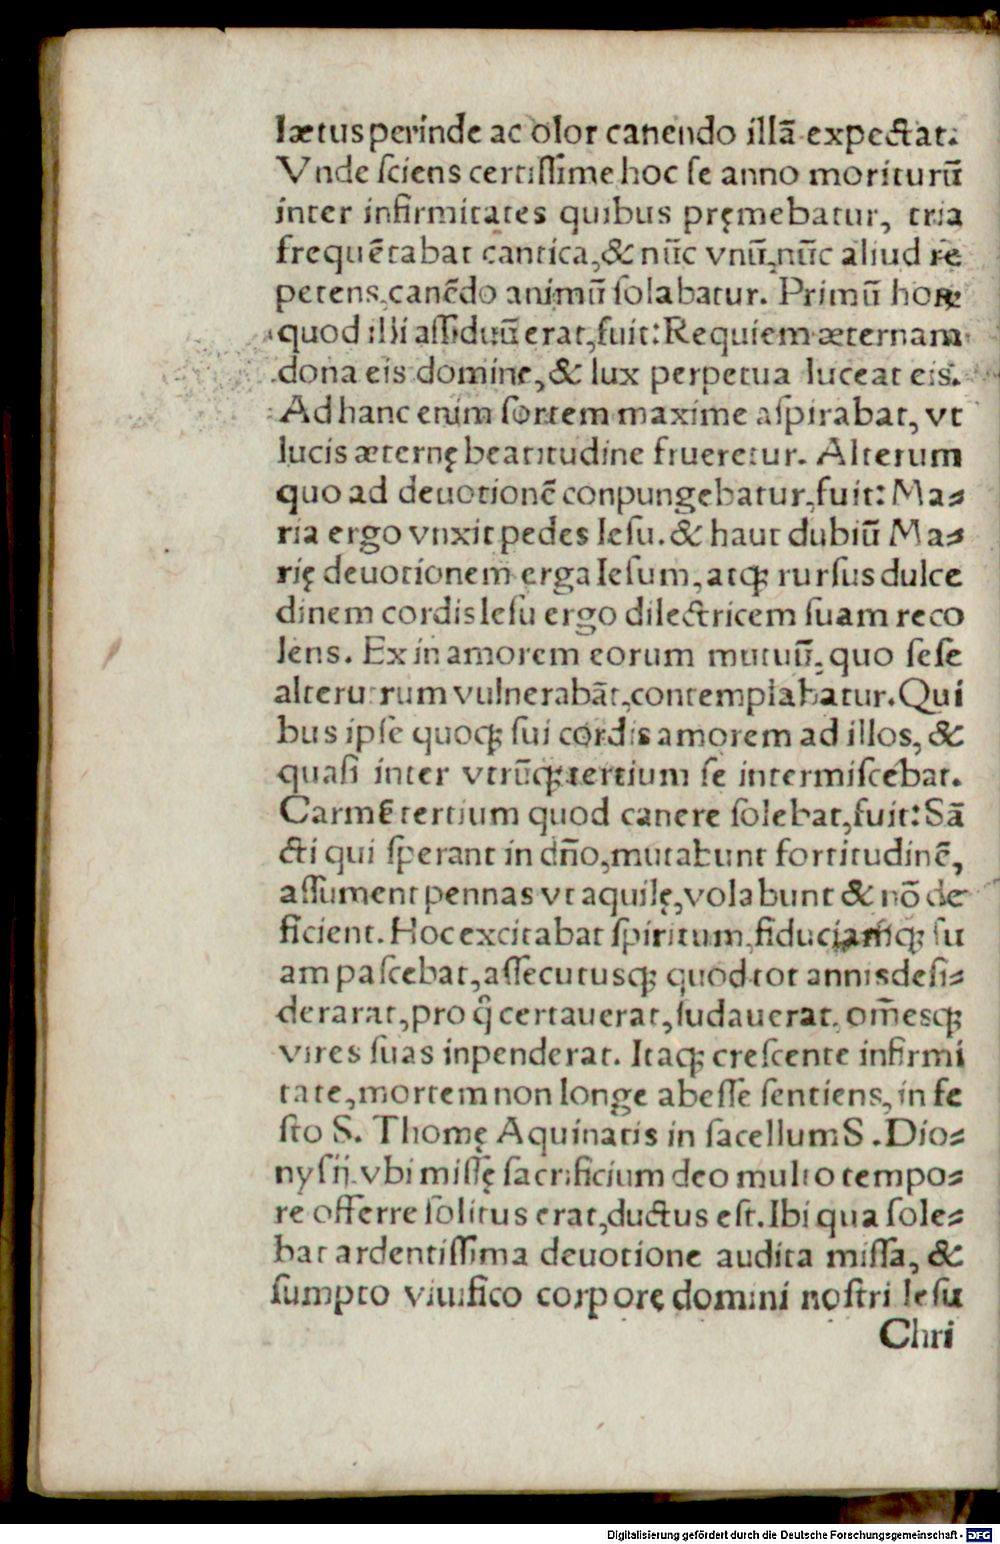 lætus perinde ac olor canendo illā expectat.
Vnde sciens certissime hoc se anno moriturū
inter infirmitates quibus pręmebatur, tria
frequētabat cantica, & nūc vnū, nūc aliud re
petens, canēdo animū solabatur. Primū horꝝ
quod illi assiduū erat, fuit: Requiem æternam
dona eis domine, & lux perpetua luceat eis.
Ad hanc enim sortem maxime aspirabat, vt
lucis æternę beatitudine frueretur. Alterum
quo ad deuotionē conpungebatur, fuit: Ma⸗
ria ergo vnxit pedes Iesu. & haut dubiū Ma⸗
rię deuotionem erga Iesum, atqꝫ rursus dulce
dinem cordis Iesu ergo dilectricem suam reco
lens. Ex in amorem eorum mutuū, quo sese
alteru rum vulnerabāt, contemplabatur. Qui
bus ipse quoqꝫ sui cordis amorem ad illos, &
quasi inter vtrūqꝫ tertium se intermiscebat.
Carmē tertium quod canere solebat, fuit: Sā
cti qui sperant in dn̄o, mutabunt fortitudinē,
assument pennas vt aquilę, volabunt & nō de
ficient. Hoc excitabat spiritum, fiduciamqꝫ su
am pascebat, assecutusqꝫ quod tot annis desi⸗
derarat, pro q̊ certauerat, sudauerat, om̄esqꝫ
vires suas inpenderat. Itaqꝫ crescente infirmi
tate, mortem non longe abesse sentiens, in fe
sto S. Thomę Aquinatis in sacellum S. Dio⸗
nysij. vbi missę sacrificium deo multo tempo⸗
re offerre solitus erat, ductus est. Ibi qua sole⸗
bat ardentissima deuotione audita missa, &
sumpto viuifico corpore domini nostri Iesu
Chri
Digitalisierung gefördert durch die Deutsche Forschungsgemeinschaft - DFG